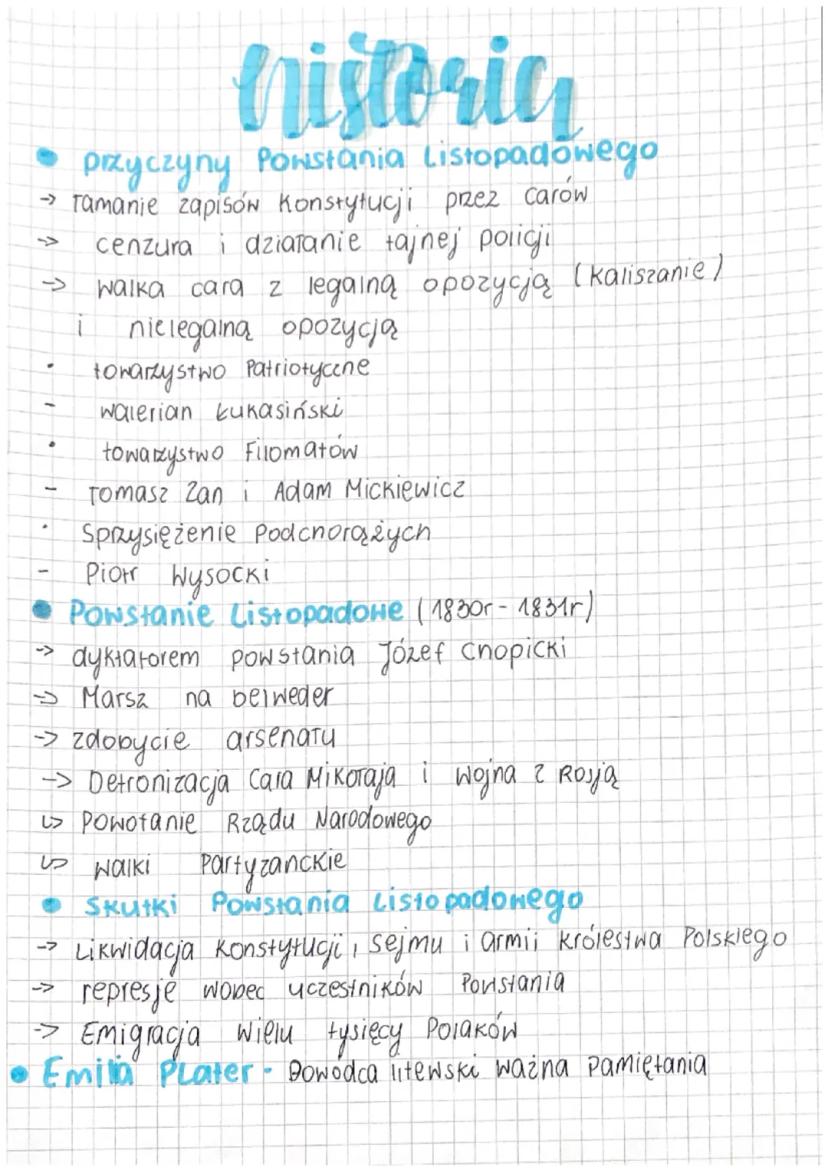 historia
• przyczyny Powstania Listopadowego
→ łamanie zapisów Konstytucji przez Carów
→ cenzura i działanie tajnej policji
→ walka cara z legalną opozycją (Kaliszanie)
i nielegalną opozycją
• towarzystwo Patriotyczne
- walerian Łukasiński
• towarzystwo Filomatów
- Tomasz Zan i Adam Mickiewicz
• Sprzysiężenie Podchorążych
- Piotr Wysocki
• Powstanie Listopadowe (1830r - 1831r)
→ dyktatorem powstania Józef Chłopicki
→ Marsz na belweder
→ zdobycie arsenału
→ Detronizacja Cara Mikołaja i wojna z Rosją
↳ Powołanie Rządu Narodowego
↳ walki Partyzanckie
• Skutki Powstania Listopadowego
→ Likwidacja Konstytucji, Sejmu i armii królestwa Polskiego
→ represje wobec uczestników Powstania
→ Emigracja wielu tysięcy Polaków
• Emilia Plater - Dowódca litewski ważna Pamiętania